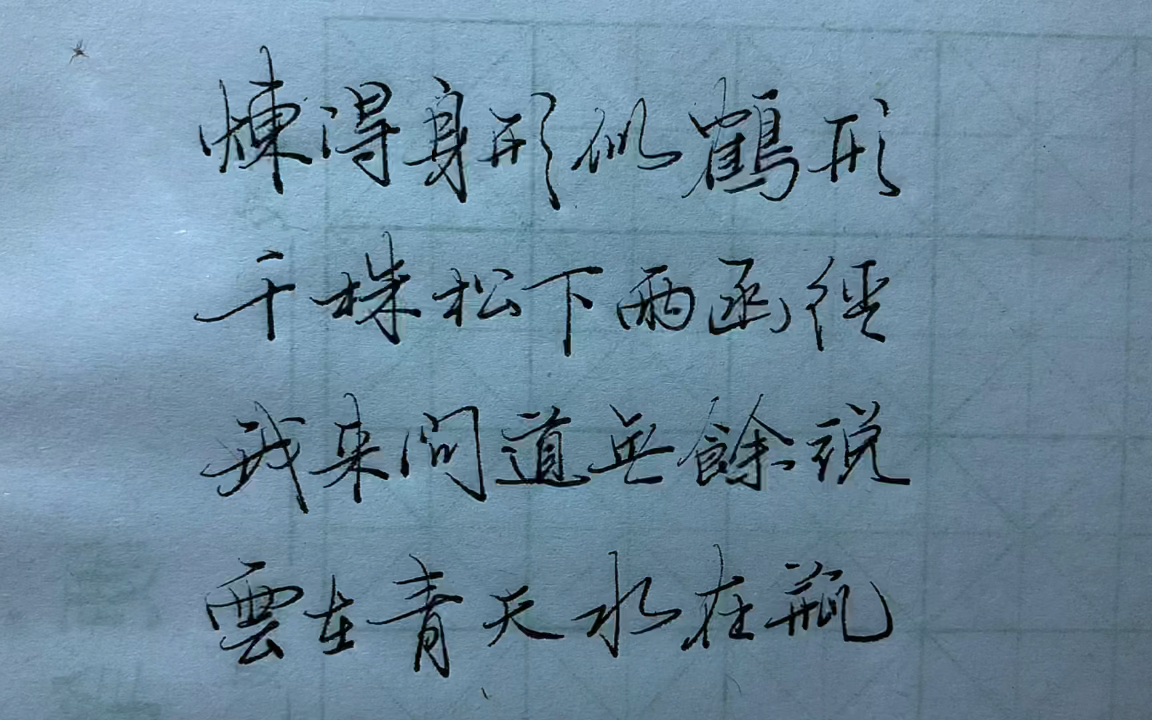 煉得身形似鶴形
千株松下兩函經
我来問道無餘説
雲在青天水在瓶